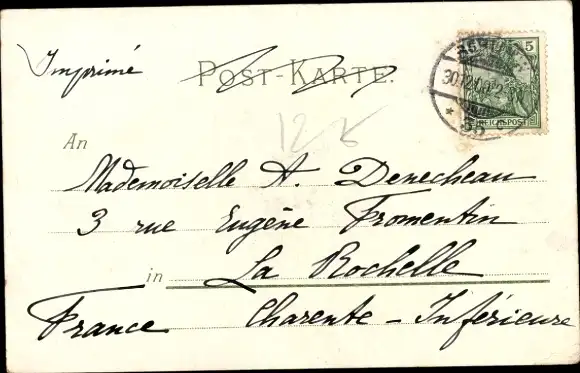 Imprimé
POST-KARTE.
5
REICHSPOST
12
An
Mademoiselle A. Denecheau
3 rue Eugène Fromentin
in La Rochelle
France Charente-Inférieure